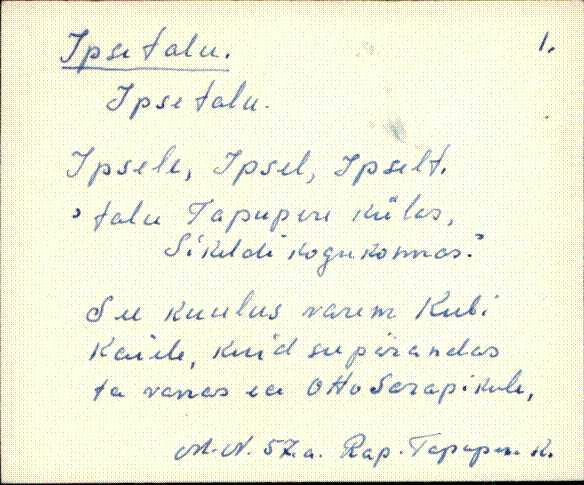 Ipse talu.
1.
Ipse talu.
Ipsele, Ipsel, Ipselt.
talu Tapupere külas,
Sikeldi kogukonnas.
See kuulus varem Kubi
Kaiele, kuid se pärandas
ta vanas eas Otto Sarapikule,
M.N. 57.a. Rap. Tapupere k.